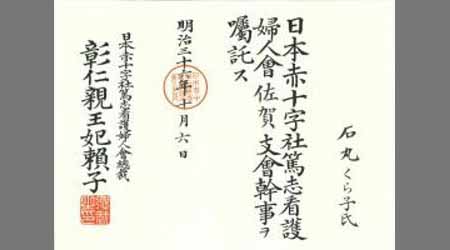 石丸くら子氏
日本赤十字社篤志看護
婦人會佐賀支會幹事ヲ
囑託ス
明治三十六年十月六日
日本赤十字社篤志看護婦人會總裁
彰仁親王妃賴子